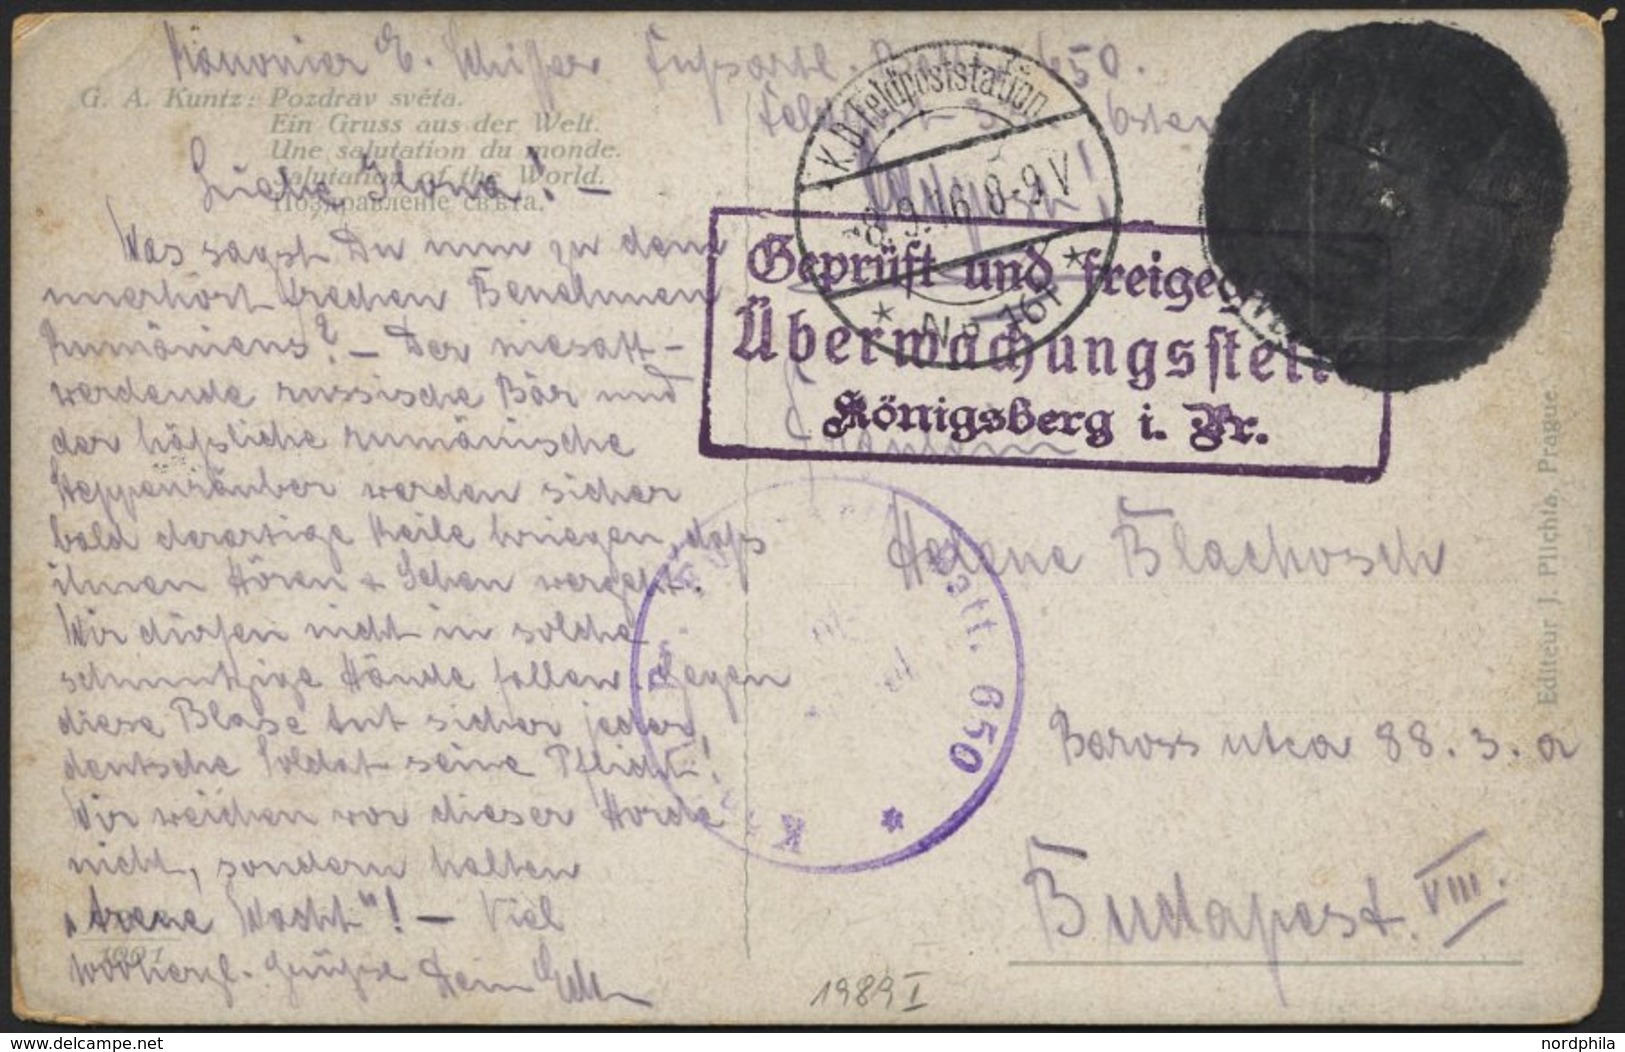 Kanonier E. Schiffer Fussartl. Batt. 650.
G. A. Kuntz: Pozdrav světa.
Ein Gruss aus der Welt.
Une salutation du monde.
Salutation of the World.
Поздравленіе свѣта.
Liebe Ilona! –
Was sagst Du nun zu dem
unerhört frechen Benehmen
Rumäniens? – Der
werdende russische Bär und
der häßliche rumänische
Steppenräuber werden sicher
bald derartige Keile kriegen, daß
ihnen Hören & Sehen vergeht.
Wir dürfen nicht in solche
schmutzige Hände fallen. Gegen
diese Blase tut sicher jeder
deutsche Soldat seine Pflicht!
Wir weichen vor dieser Horde
nicht, sondern halten
„treue Wacht"! – Viel
Grüße Dein
K.D. Feldpoststation
8.9.16 8-9 V
* No 16 *
Geprüft und
Überwachungsstelle
Königsberg i. Pr.
Batt. 650 *
Helene Blachosch
Baross utca 88. 3. a
Budapest. VIII.
Editeur J. Plichta, Prague
1989 I
www.delcampe.net
nordphila